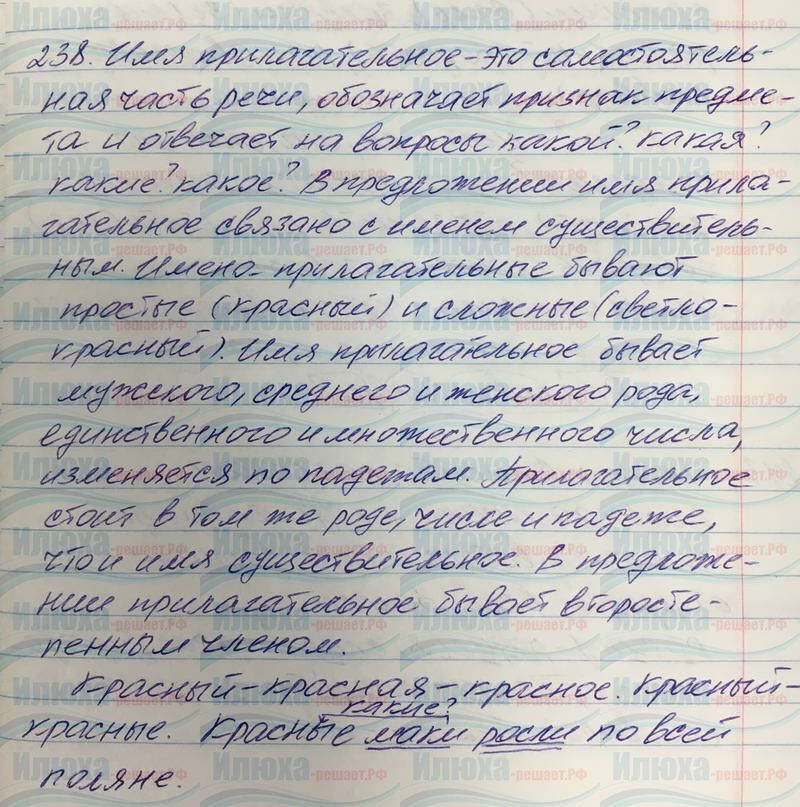 238. Имя прилагательное - это самостоятель-
ная часть речи, обозначает признак предме-
та и отвечает на вопросы какой? какая?
какие? какое? В предложении имя прила-
гательное связано с именем существитель-
ным. Имена прилагательные бывают
простые (красный) и сложные (светло-
красный). Имя прилагательное бывает
мужского, среднего и женского рода,
единственного и множественного числа,
изменяется по падежам. Прилагательное
стоит в том же роде, числе и падеже,
что и имя существительное. В предложе-
нии прилагательное бывает второсте-
пенным членом.
Красный - красная - красное. Красный -
какие?
красные. Красные маки росли по всей
поляне.
Илюха-решает.РФ